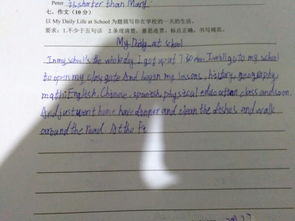 Peter is shorter than Mary.
七、作文(10分)
以 My Daily Life at School 为题描写你在学校的一天的生活。
要求：1.不少于五句话 2.条理清楚，意思连贯，标点正确，书写规范。
My Daily at school
In my school's the I get up at I will go to my school
to open my class And began my lessons, history, geography
math English, Chinese, spanish, physical education class and soon.
And just went home have danper and clean the dishes and walk
around the road. At the